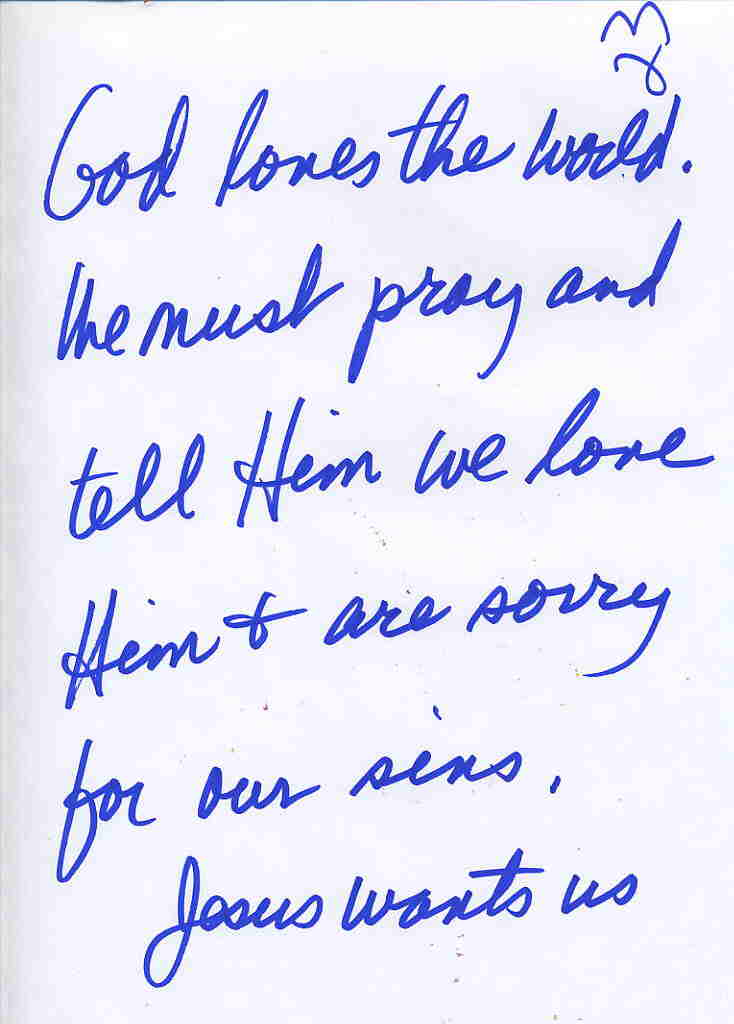 23
God loves the world.
We must pray and
tell Him we love
Him & are sorry
for our sins.
Jesus wants us